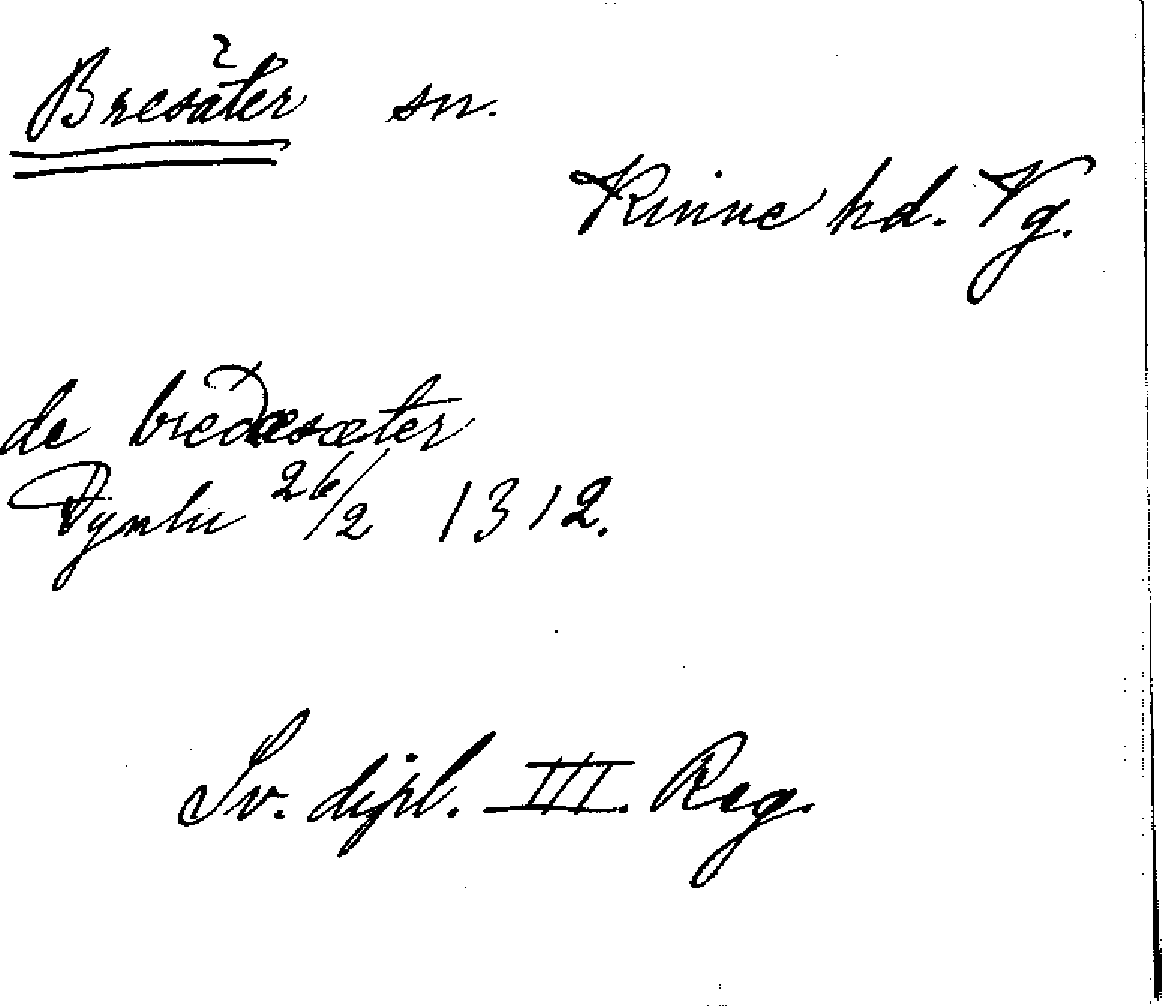 Bresäter sn.
Kinne hd. Vg.
de bredæsæter
26/2 1312.
Sv. dipl. III. Reg.